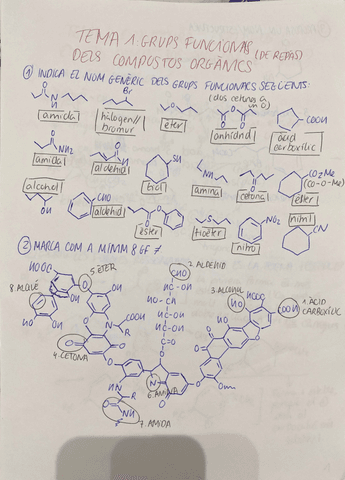 TEMA 1: GRUPS FUNCIONALS (DE REPÀS)
DELS COMPOSTOS ORGÀNICS
① INDICA EL NOM GENÈRIC DELS GRUPS FUNCIONALS SEGÜENTS:
(dos cetona
Br
COOH
amida
halogen//
bromur
èter
anhídrid
àcid
carboxílic
NH2
SH
CO2Me
(CO-O-Me)
amida
aldehid
tiol
amina
cetona
èster
alcohol
CHO
NO2
nitril
CN
OH
aldehid
èster
tioèter
nitro
② MARCA COM A MÍNIM 8 GF ≠
2. ALDEHID
HOOC
5. ÈTER
CHO
3. Alcohol
HOOC
8. ALQUÈ
HO
COOH
1. ÀCID
CARBOXÍLIC
COOH
4. CETONA
6. AMINA
OMe
7. AMIDA